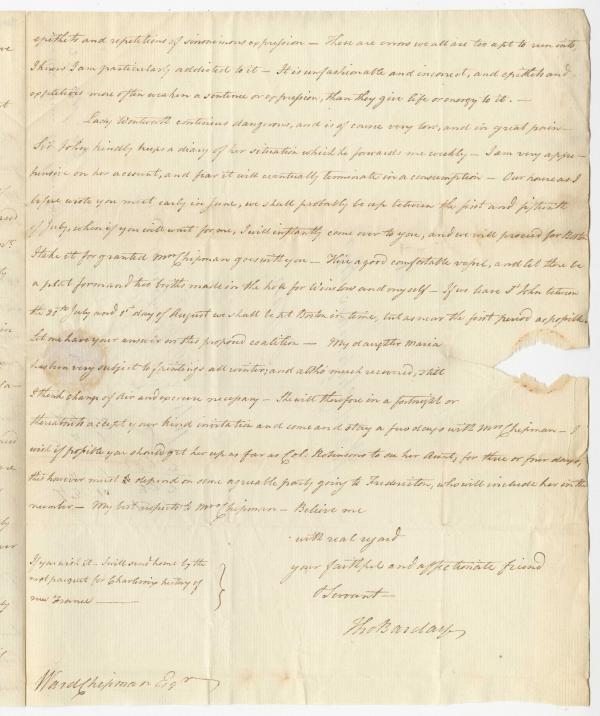 epithets and repetitions of sinonimous expression — These are errors we all are too apt to run into,
I know I am particularly addicted to it — It is unfashionable and incorrect, and epithets and
repetitions more often weaken a sentence or expression, than they give life or energy to it. —
Lady Wentworth continues dangerous, and is of course very low, and in great pain —
Sir John kindly keeps a diary of her situation which he forwards me weekly — I am very appre-
hensive on her account, and fear it will eventually terminate in a consumption — Our house as I
before wrote you meet early in June, we shall probably be up between the first and fifteenth
of July, when if you will wait for me, I will instantly come over to you, and we will proceed for Boston
I take it for granted Mrs Chipman goes with you — Hire a good comfortable vessel, and let there be
a platform and two births made in the hold for Winslow and myself — If we leave St John between
the 25th July and 1st day of August we shall be at Boston in time, but as near the first period as possible.
Let me have your answer on this proposed coalition — My daughter Maria
has been very subject to faintings all winter, and altho much recovered, still
I think change of air and exercise necessary — She will therefore in a fortnight or
thereabouts accept your kind invitation and come and stay a few days with Mrs Chipman — I
wish if possible you should get her up as far as Col. Robinsons to see her Aunt, for three or four days,
this however must depend on some agreeable party going to Fredericton, who will include her in the
number — My best respects to Mrs Chipman — Believe me
with real regard
your faithful and affectionate friend
& Servant —
Tho Barclay
If you wish it I will send home by the
next pacquet for Charlevoix history of
new France —
Ward Chipman Esqr